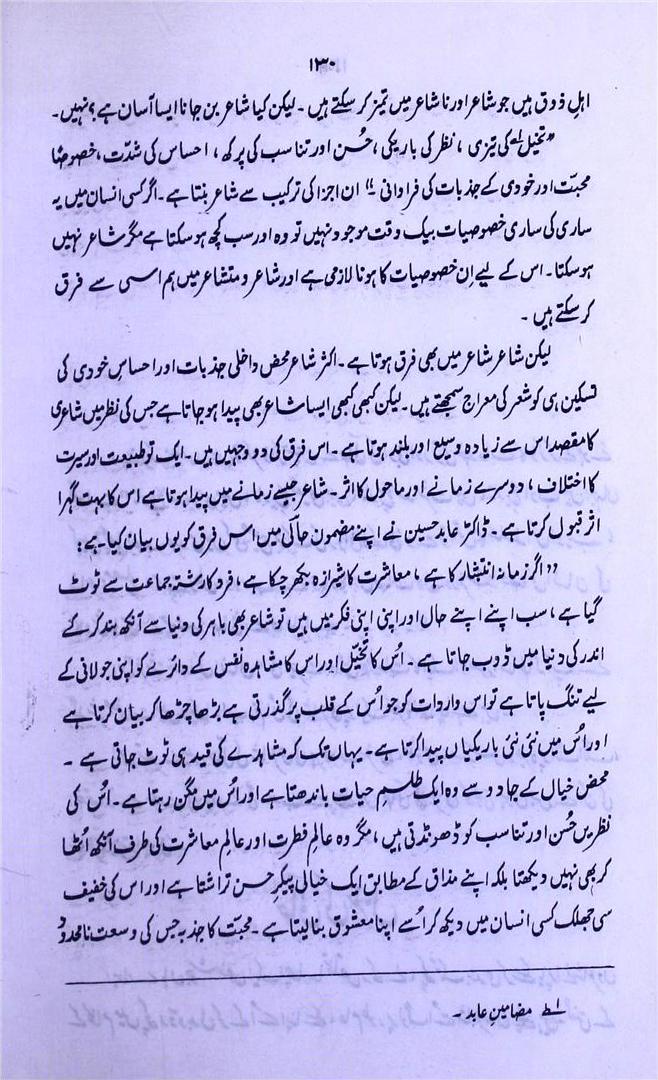 ۱۳۰
اہلِ ذوق ہیں جو شاعر اور ناشاعر میں تمیز کر سکتے ہیں ۔ لیکن کیا شاعر بن جانا ایسا آسان ہے ؟ نہیں ۔
”تخیل کی تیزی ، نظر کی باریکی ، حُسن اور تناسب کی پرکھ ، احساس کی شدّت ، خصوصًا
محبّت اور خودی کے جذبات کی فراوانی ۔“ ان اجزا کی ترکیب سے شاعر بنتا ہے ۔ اگر کسی انسان میں یہ
ساری کی ساری خصوصیات بیک وقت موجود نہیں تو وہ اور سب کچھ ہو سکتا ہے مگر شاعر نہیں
ہو سکتا ۔ اس کے لیے اِن خصوصیات کا ہونا لازمی ہے اور شاعر و متشاعر میں ہم اسی سے فرق
کر سکتے ہیں ۔
لیکن شاعر شاعر میں بھی فرق ہوتا ہے ۔ اکثر شاعر محض داخلی جذبات اور احساسِ خودی کی
تسکین ہی کو شعر کی معراج سمجھتے ہیں ۔ لیکن کبھی کبھی ایسا شاعر بھی پیدا ہو جاتا ہے جس کی نظر میں شاعری
کا مقصد اس سے زیادہ وسیع اور بلند ہوتا ہے ۔ اس فرق کی دو وجہیں ہیں ۔ ایک تو طبیعت اور سیرت
کا اختلاف ، دوسرے زمانے اور ماحول کا اثر ۔ شاعر جیسے زمانے میں پیدا ہوتا ہے اس کا بہت گہرا
اثر قبول کرتا ہے ۔ ڈاکٹر عابد حسین نے اپنے مضمون حالی میں اس فرق کو یوں بیان کیا ہے :
”اگر زمانہ انتشار کا ہے ، معاشرت کا شیرازہ بکھر چکا ہے ، فرد کا رشتہ جماعت سے ٹوٹ
گیا ہے ، سب اپنے اپنے حال اور اپنی اپنی فکر میں ہیں تو شاعر بھی باہر کی دنیا سے آنکھ بند کر کے
اندر کی دنیا میں ڈوب جاتا ہے ۔ اُس کا تخیّل اور اس کا مشاہدہ نفس کے دائرے کو اپنی جولانی کے
لیے تنگ پاتا ہے تو اس واردات کو جو اُس کے قلب پر گذرتی ہے بڑھا چڑھا کر بیان کرتا ہے
اور اُس میں نئی نئی باریکیاں پیدا کرتا ہے ۔ یہاں تک کہ مشاہدے کی قید ہی ٹوٹ جاتی ہے ۔
محض خیال کے جادو سے وہ ایک طلسمِ حیات باندھتا ہے اور اُس میں مگن رہتا ہے ۔ اُس کی
نظریں حُسن اور تناسب کو ڈھونڈتی ہیں ، مگر وہ عالمِ فطرت اور عالمِ معاشرت کی طرف آنکھ اُٹھا
کر بھی نہیں دیکھتا بلکہ اپنے مذاق کے مطابق ایک خیالی پیکرِ حسن تراشتا ہے اور اس کی خفیف
سی جھلک کسی انسان میں دیکھ کر اُسے اپنا معشوق بنا لیتا ہے ۔ محبّت کا جذبہ جس کی وسعت نامحدود
لے مضامینِ عابد ۔